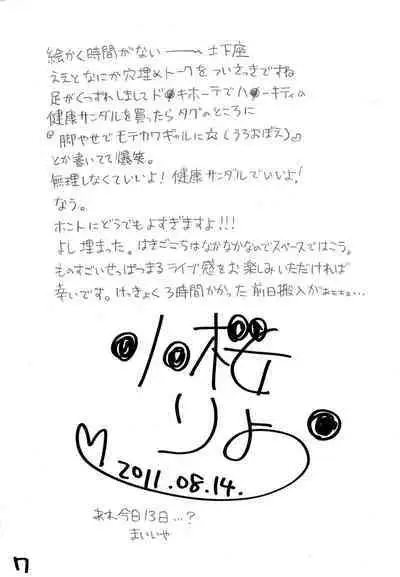 絵かく時間がない――→土下座
ええとなにか穴埋めトークをついさっきですね
足がくつずれしましてド●キホーテでハ●ーキティの
健康サンダルを買ったらタグのところに
"脚やせでモテカワギャルに☆(うろおぼえ)♡
とか書いてて爆笑。
無理しなくていいよ!健康サンダルでいいよ!
なう。
ホントにどうでもよすぎますよ!!!
よし埋まった。はきごこちはなかなかなのでスペースではこう。
ものすごいせっぱつまるライブ感をお楽しみいただければ
幸いです。けっきょく3時間かかった前日搬入が
小桜
りょう
2011.08.14.
あれ今日13日…?
まいいや
17